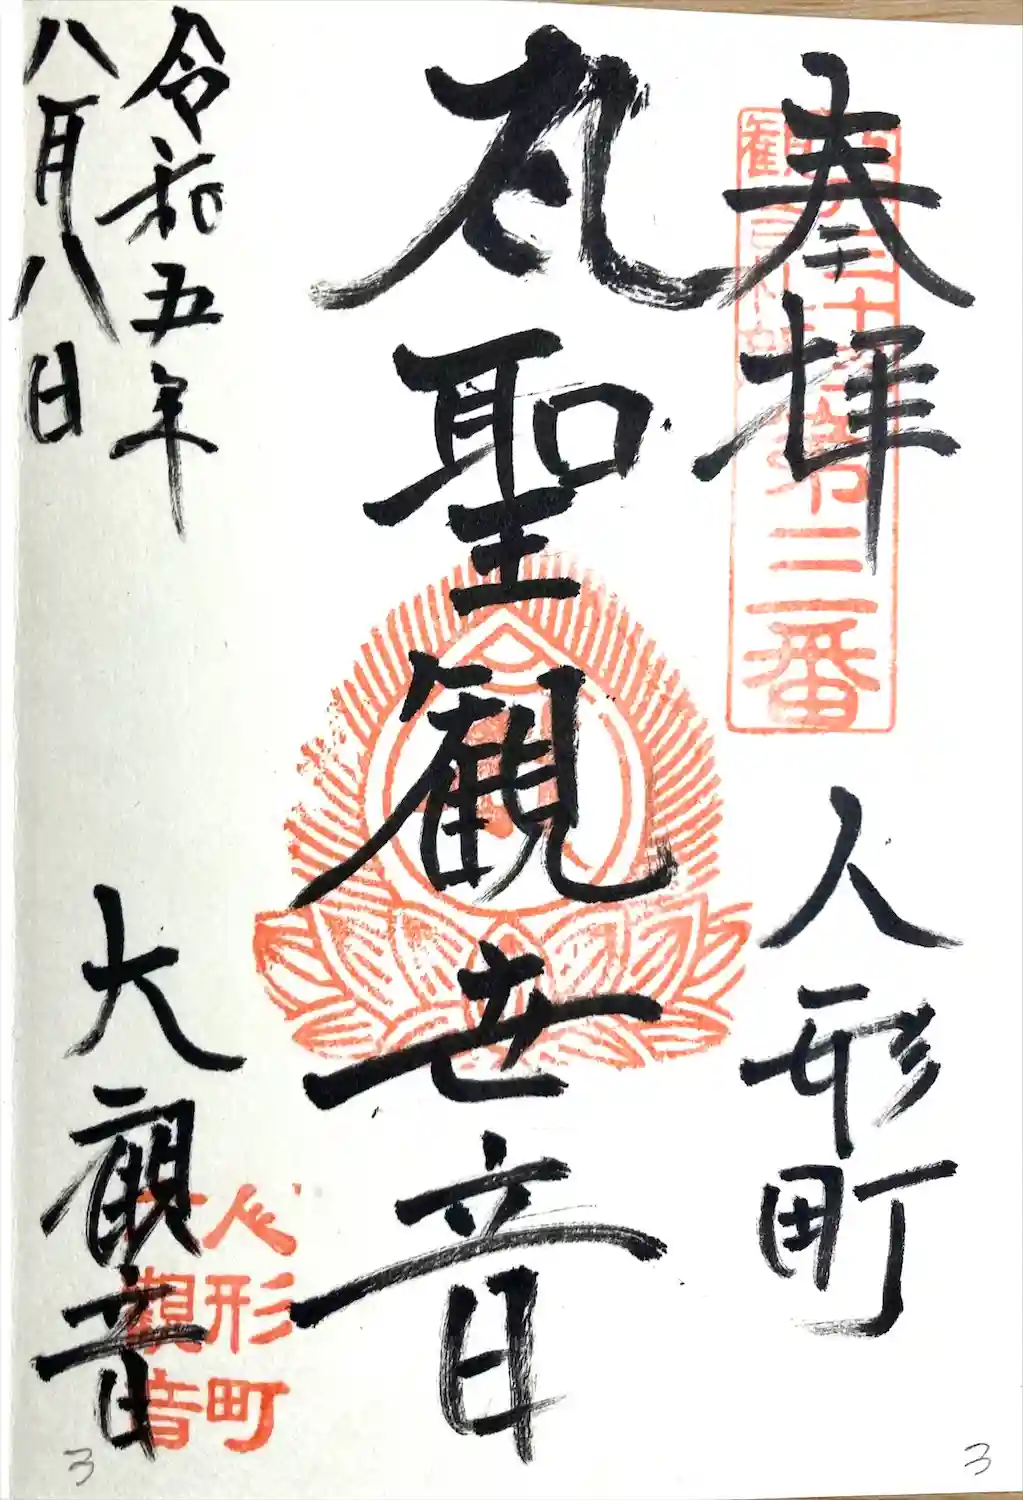 奉拝
第三番
人形町
聖観世音
令和五年
八月八日
大観音
人形町
大觀音
3
3